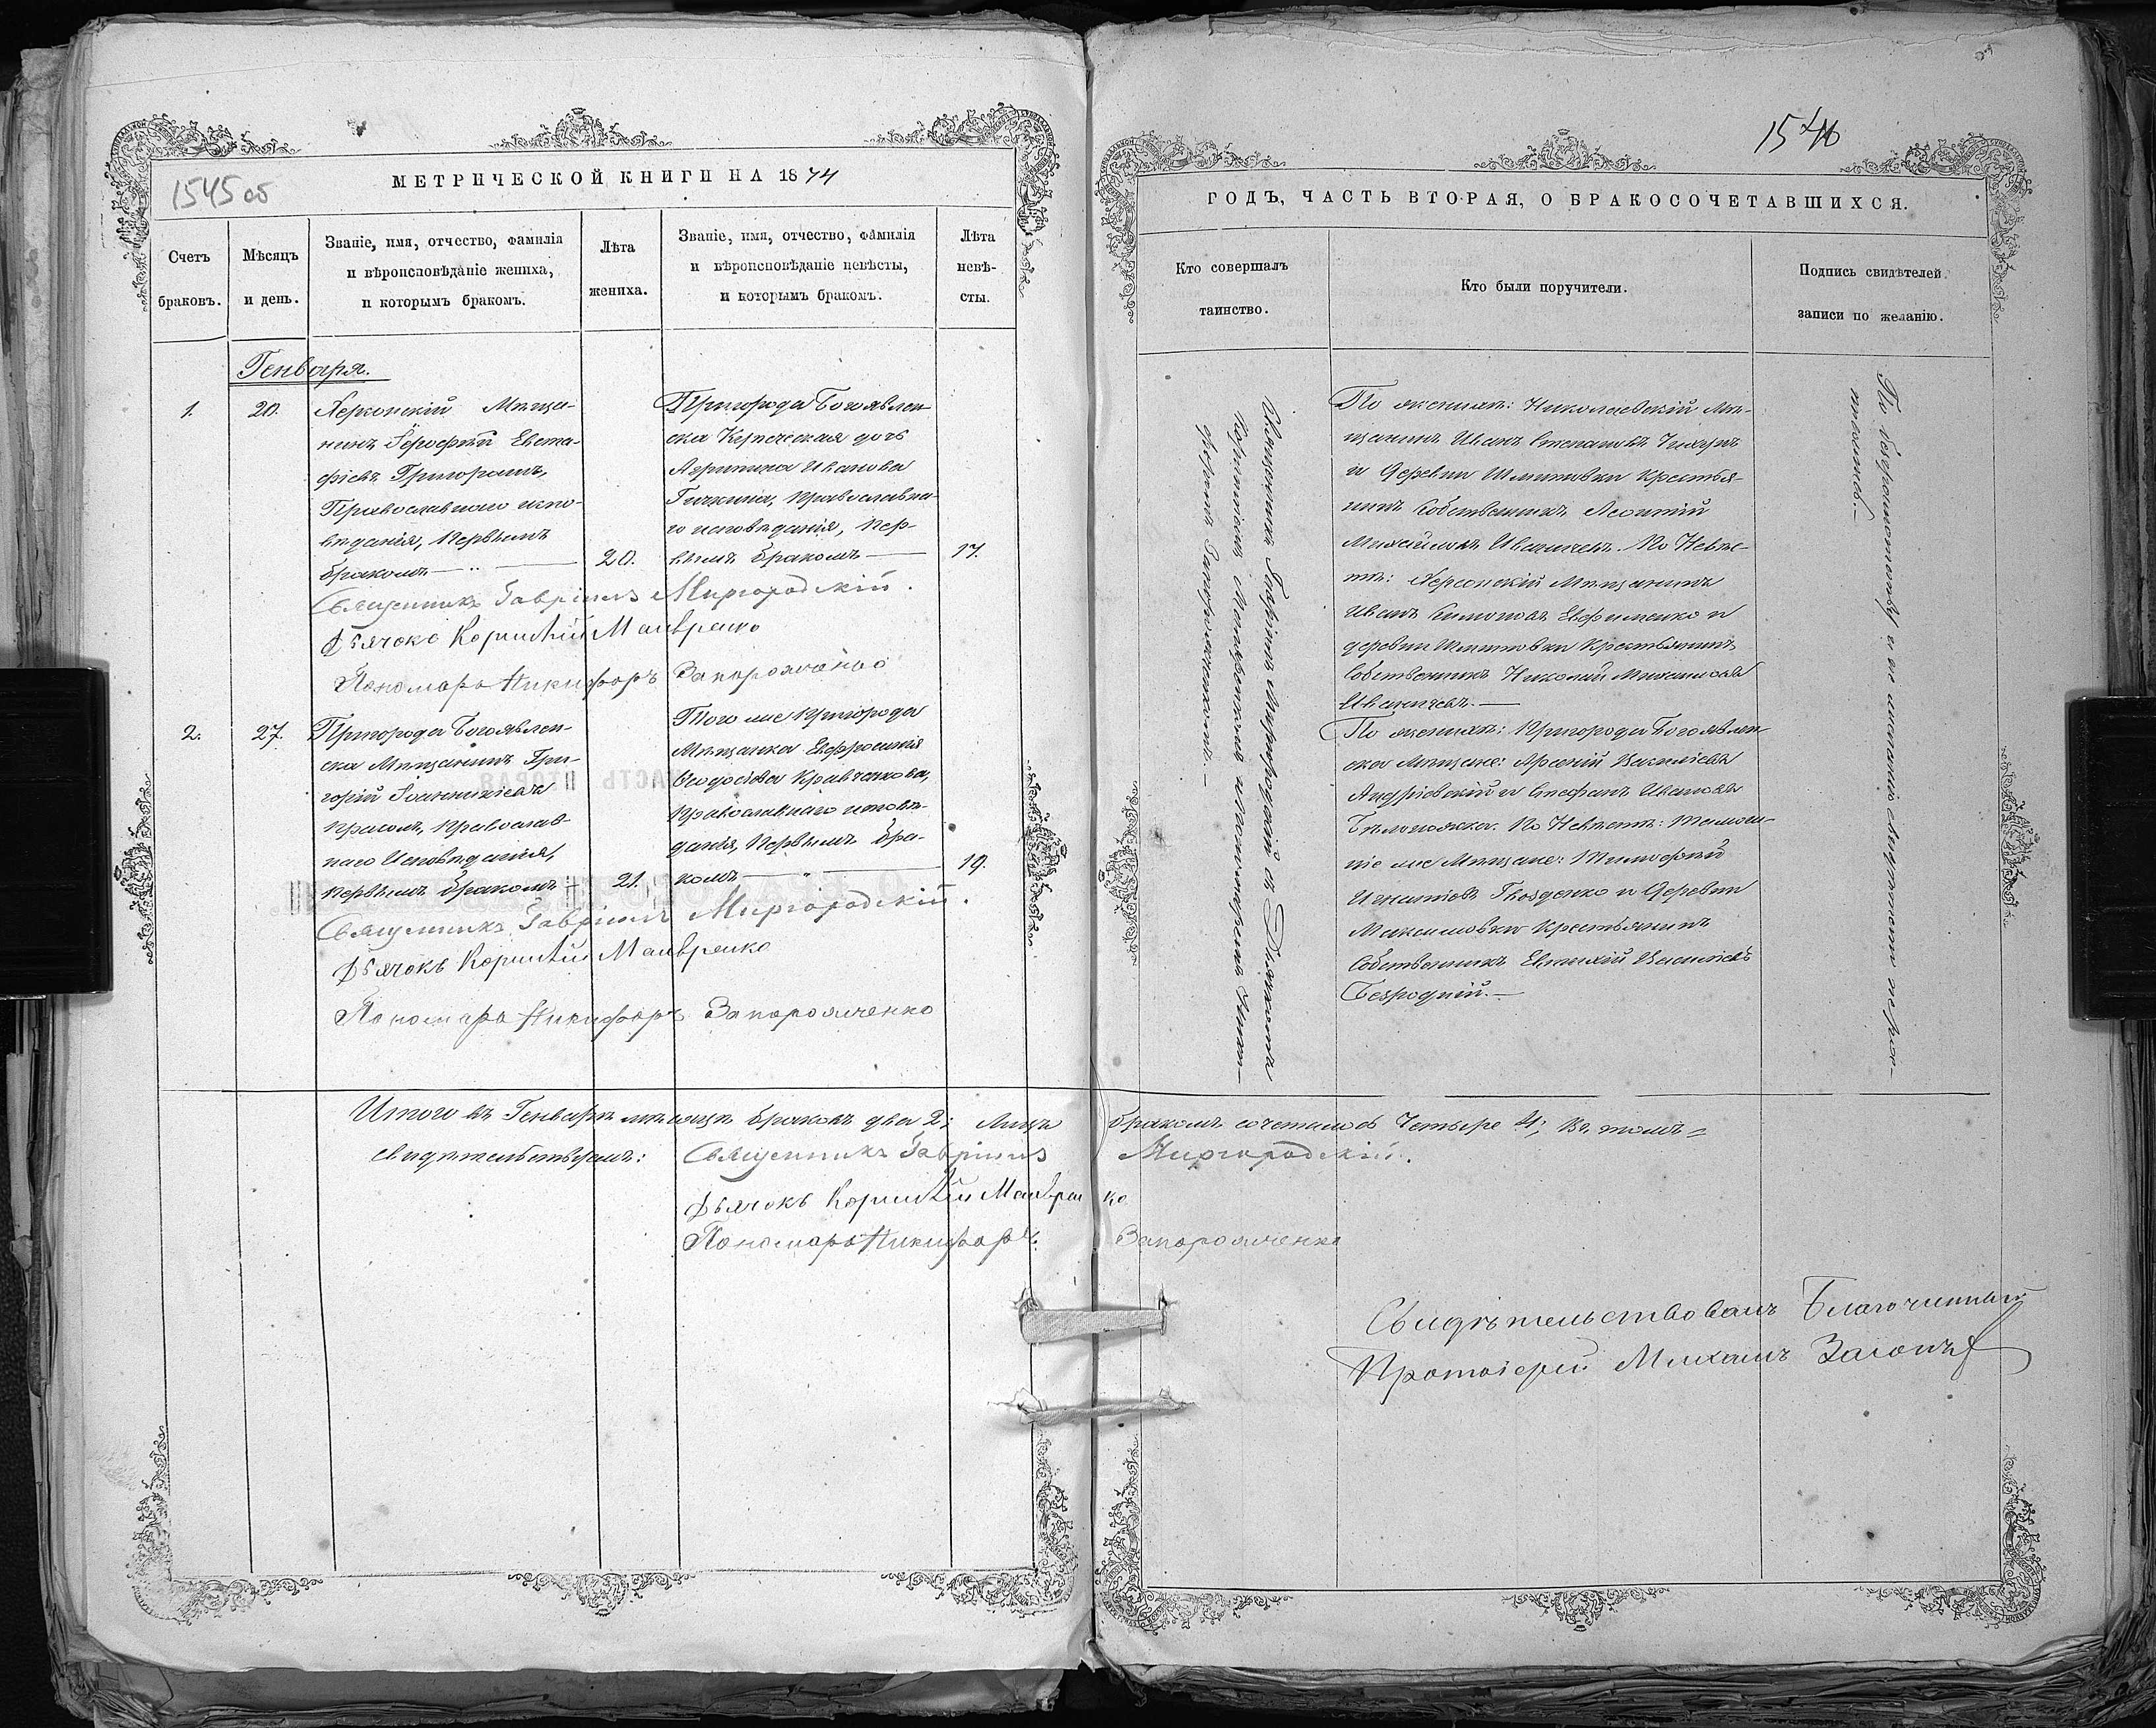 1545 об
МЕТРИЧЕСКОЙ КНИГИ НА 1874
Счетъ браковъ.
Мѣсяцъ и день.
Званіе, имя, отчество, фамилія
и вѣроисповѣданіе жениха,
и которымъ бракомъ.
Лѣта жениха.
Званіе, имя, отчество, фамилія
и вѣроисповѣданіе невѣсты,
и которымъ бракомъ.
Лѣта невѣ-
сты.
Генваря.
1.
20.
Херсонскій Мѣща-
нинъ Евста-
фіевъ
Православнаго испо-
вѣданія, первымъ
бракомъ
20.
Пригорода Богоявлен-
ска дочь
Агрипина Иванова
Православна-
го исповѣданія, пер-
вымъ бракомъ
17.
Священникъ Гавріилъ Миргородскій.
Дьячокъ Корнилій
Пономарь Никифоръ Запорожченко
2.
27.
Пригорода Богоявлен-
ска Мѣщанинъ Гри-
горій Іоанникіевъ
Православ-
наго Исповѣданія,
первымъ бракомъ
21.
Того же Пригорода
Мѣщанка Евфросинія
Ѳеодосіева Кравченкова,
Православнаго исповѣ-
данія, Первымъ бра-
комъ
19.
Священникъ Гавріилъ Миргородскій.
Дьячокъ Корнилій
Пономарь Никифоръ Запорожченко
Итого въ Генварѣ мѣсяцѣ браковъ два 2; Лицъ
свидѣтельствуемъ: Священникъ Гавріилъ
Дьячокъ Корнилій
Пономарь Никифоръ
1546
ГОДЪ, ЧАСТЬ ВТОРАЯ, О БРАКОСОЧЕТАВШИХСЯ.
Кто совершалъ
таинство.
Кто были поручители.
Подпись свидѣтелей
записи по желанію.
Священникъ Гавріилъ Миргородскій съ Дьячкомъ
Корниліемъ и пономаремъ Ники-
форомъ Запорожченкомъ.
По женихѣ: Николаевскій Мѣ-
щанинъ Иванъ Степановъ
и Деревни Крестья-
нинъ Собственникъ Леонтій
Михайловъ По Невѣс-
тѣ: Херсонскій Мѣщанинъ
Иванъ Евфименко и
деревни Крестьянинъ
Собственникъ Николай Михайловъ
По женихѣ: Пригорода Богоявлен-
ска Мѣщане: Арсеній Василіевъ
Андріевскій и Стефанъ Ивановъ
По Невѣстѣ:
же Мѣщане: Тимофей
Игнатіевъ Гвозденко и Деревни
Максимовки Крестьянинъ
Собственникъ Евтихій Василіевъ
Безродній.
По безграмотству и не имѣнію
бракомъ сочеталось Четыре 4; Въ томъ
Миргородскій.
ко
Запорожченко
Свидѣтельствовалъ Благочинный
Протоіерей Михаилъ